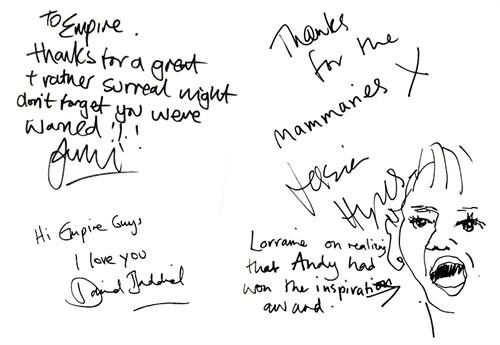 To Empire.
thanks for a great
+ rather surreal night
don't forget you were
warned !!!
Hi Empire Guys
I love you
David Baddiel
Thanks
for the
mammaries X
Lorraine on realising
that Andy had
won the inspiration
award.